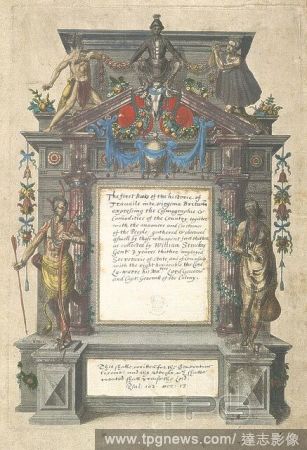 The first Booke of the historie of
Travaile into Virginia Britania
expressing the Cosmographie &
Comodities of the Country, togither
with the manners and Customes
of the People, gathered & observed
aswell by those who went first thither
as collected by William Strachey
Gent. 3 yeares thither imployed
Secretarie of State
with the right honorable the Lord
La-warre his Ma Lord Governor
and Capt. Generall of the Colony.
This shalbe written for the Generation
to come: and the
shall prayse the Lord.
Psal: 102. ver: 18
www.tpgnews.com/ 達志影像